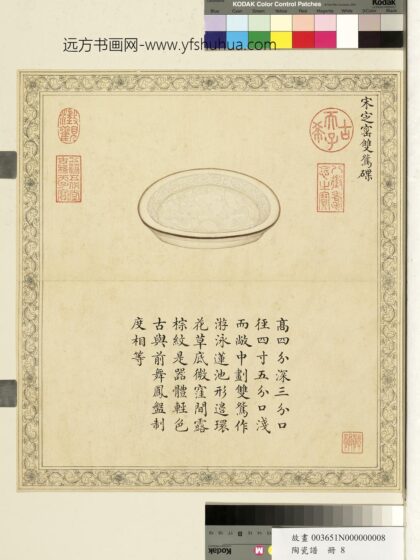 KODAK Color Control Patches
Blue Cyan Green Yellow Red Magenta White 3/Color Black
远方书画网-www.yfshuhua.com
宋定窑雙鴛碟
古希天子
八徵耄念之寶
高四分深三分口
徑四寸五分口淺
而敞中劃雙鴛作
游泳蓮池形邊環
花草底微窪間露
棕紋是器體輕色
古與前舞鳳盤制
度相等
故畫 003651N000000008
陶瓷譜 冊 8